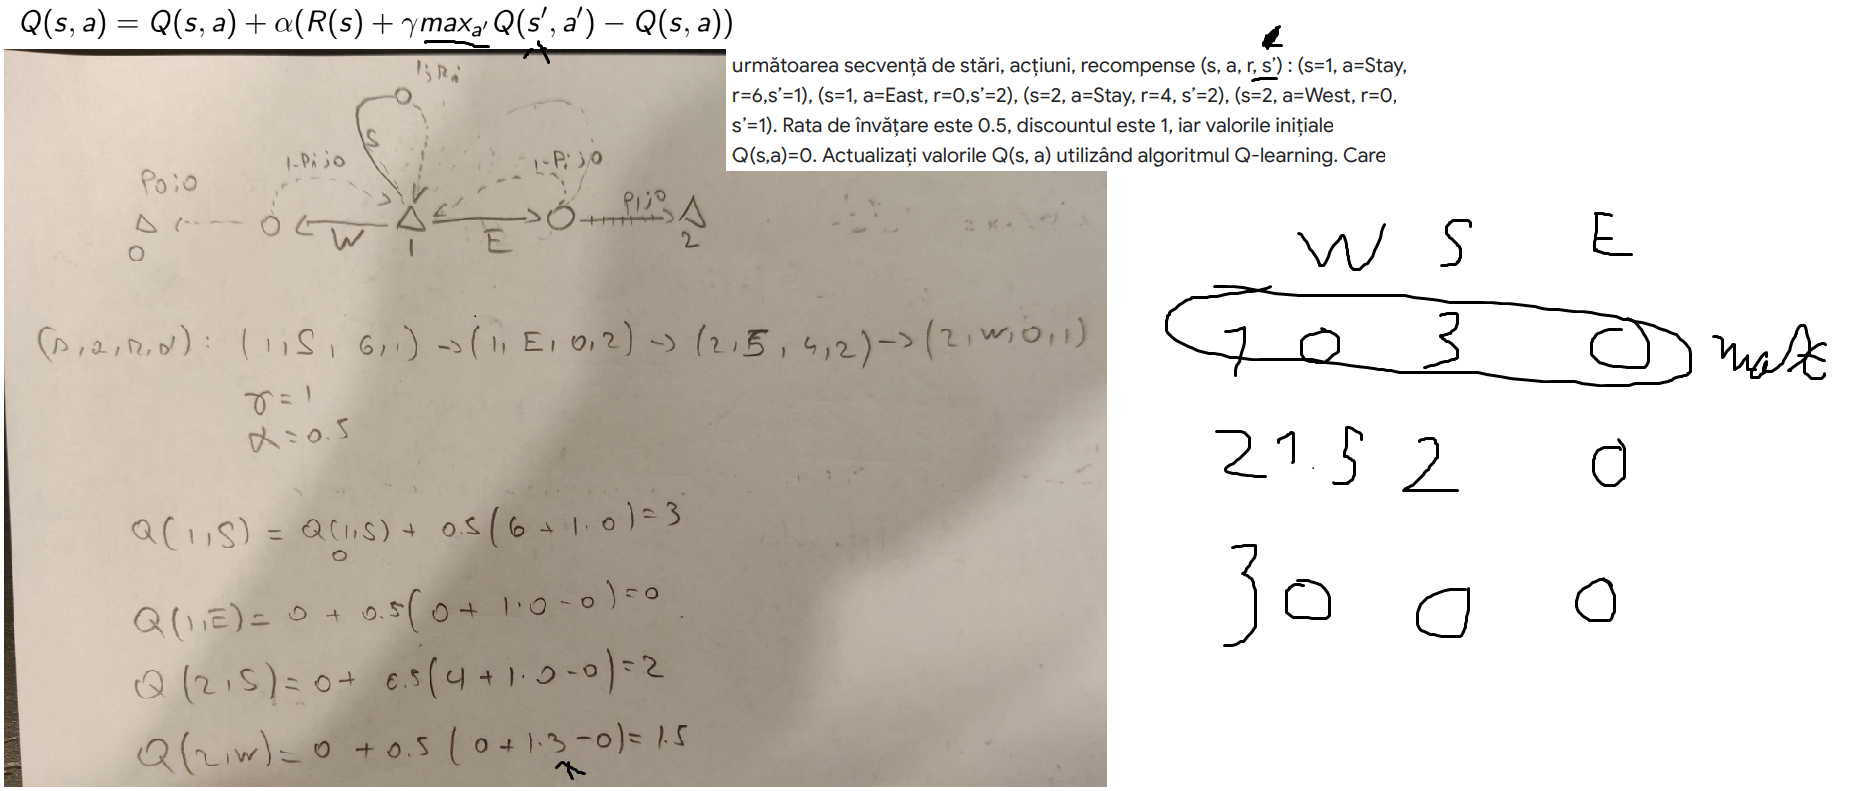 Q(s, a) = Q(s, a) + α(R(s) + γmaxₐ′Q(s′, a′) − Q(s, a))
următoarea secvență de stări, acțiuni, recompense (s, a, r, s’) : (s=1, a=Stay,
r=6,s’=1), (s=1, a=East, r=0,s’=2), (s=2, a=Stay, r=4, s’=2), (s=2, a=West, r=0,
s’=1). Rata de învățare este 0.5, discountul este 1, iar valorile inițiale
Q(s,a)=0. Actualizați valorile Q(s, a) utilizând algoritmul Q-learning. Care
S
1-Pi;0
1-Pi;0
P0;0
Pi;0
0
W
1
E
2
(s,a,r,s'): (1,S,6,1) -> (1,E,0,2) -> (2,S,4,2) -> (2,W,0,1)
γ=1
α=0.5
Q(1,S) = Q(1,S) + 0.5(6 + 1·0)=3
0
Q(1,E)= 0 + 0.5(0 + 1·0-0)=0
Q(2,S)=0+ 0.5(4+1·0-0)=2
Q(2,W)=0 +0.5(0+1·3-0)=1.5
W S E
1 0 3 0 max
2 1.5 2 0
3 0 0 0